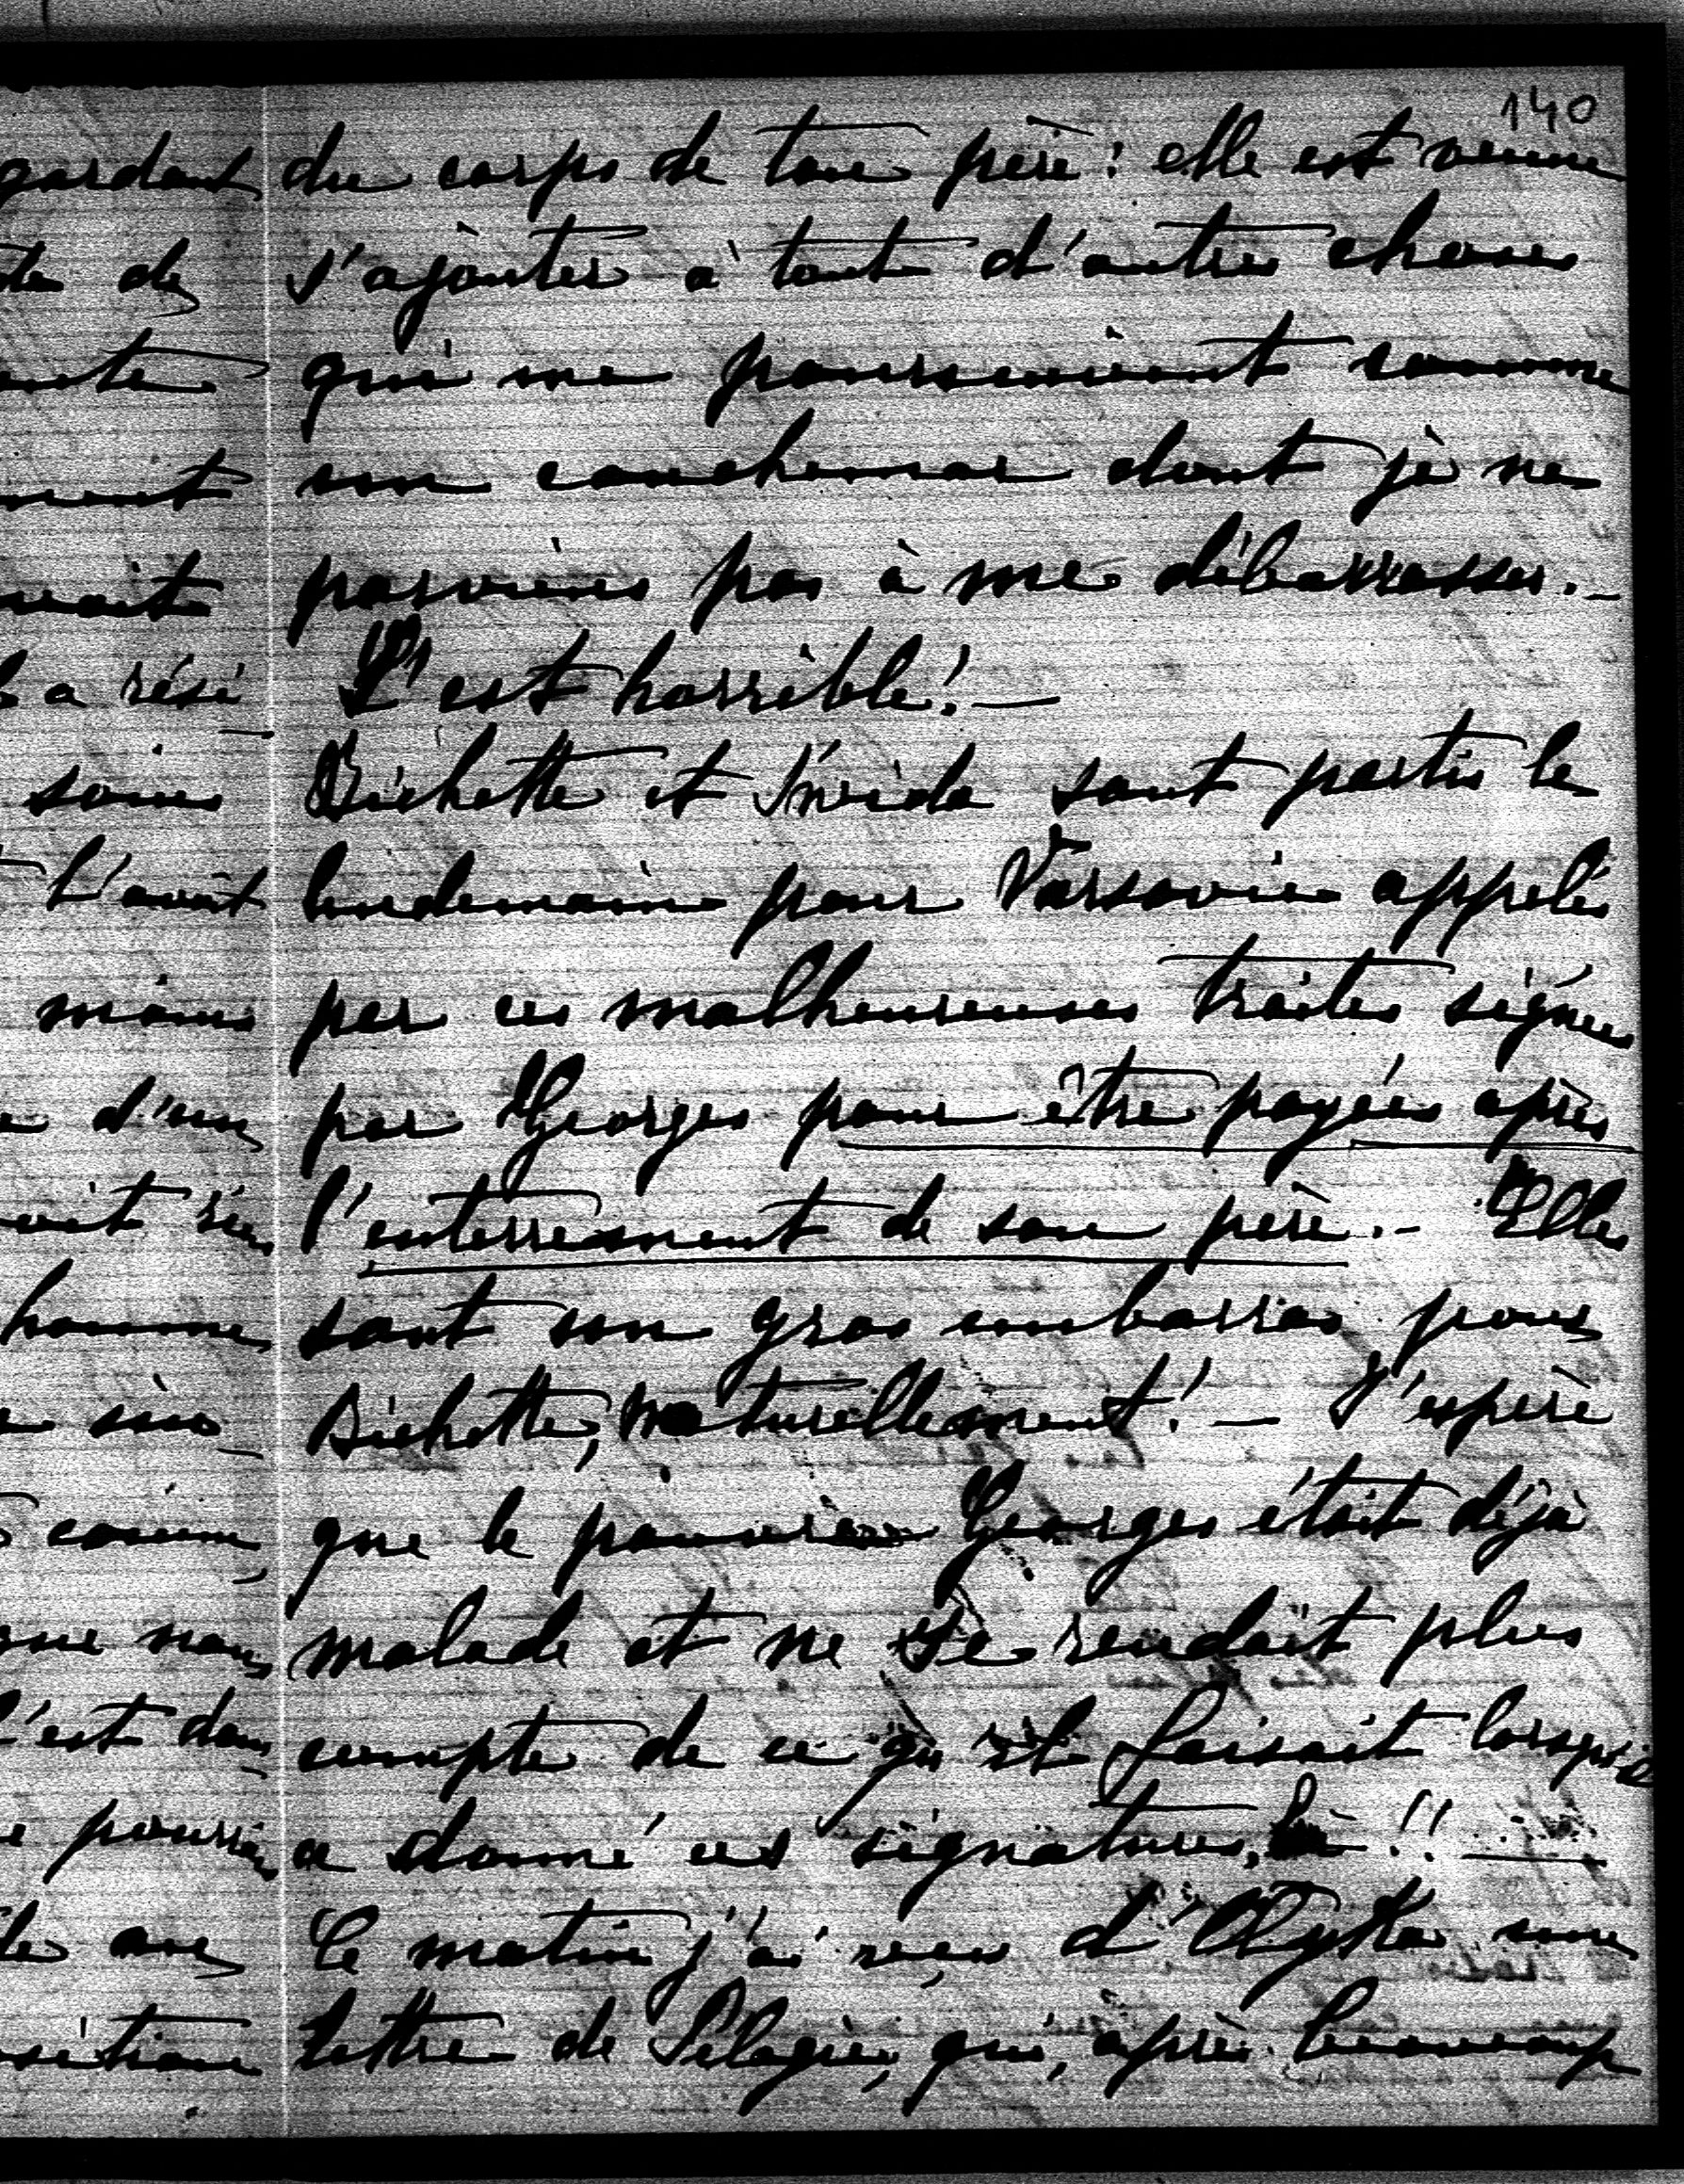 140
du corps de ton père: elle est venue
s'ajouter à tout d'autres choses
qui me poursuivent comme
un cauchemar dont je ne
parviens pas à me débarrasser.—
C'est horrible!—
Bichette et sont partis le
lendemain pour Varsovie appelés
par ces malheureuses traites signées
par Georges pour être payées après
l'enterrement de son père.— Elles
sont un gros embarras pour
Bichette, naturellement!— J'espère
que le pauvre Georges était déjà
malade et ne se rendait plus
compte de ce qu'il faisait lorsqu'il
a donné ces signatures, là!!—
Ce matin j'ai reçu d' une
lettre de Pélagie, qui, après beaucoup
gardant
de
ment
a rési
soins
l'avait
moins
d'un
homme
nous
c'est dans